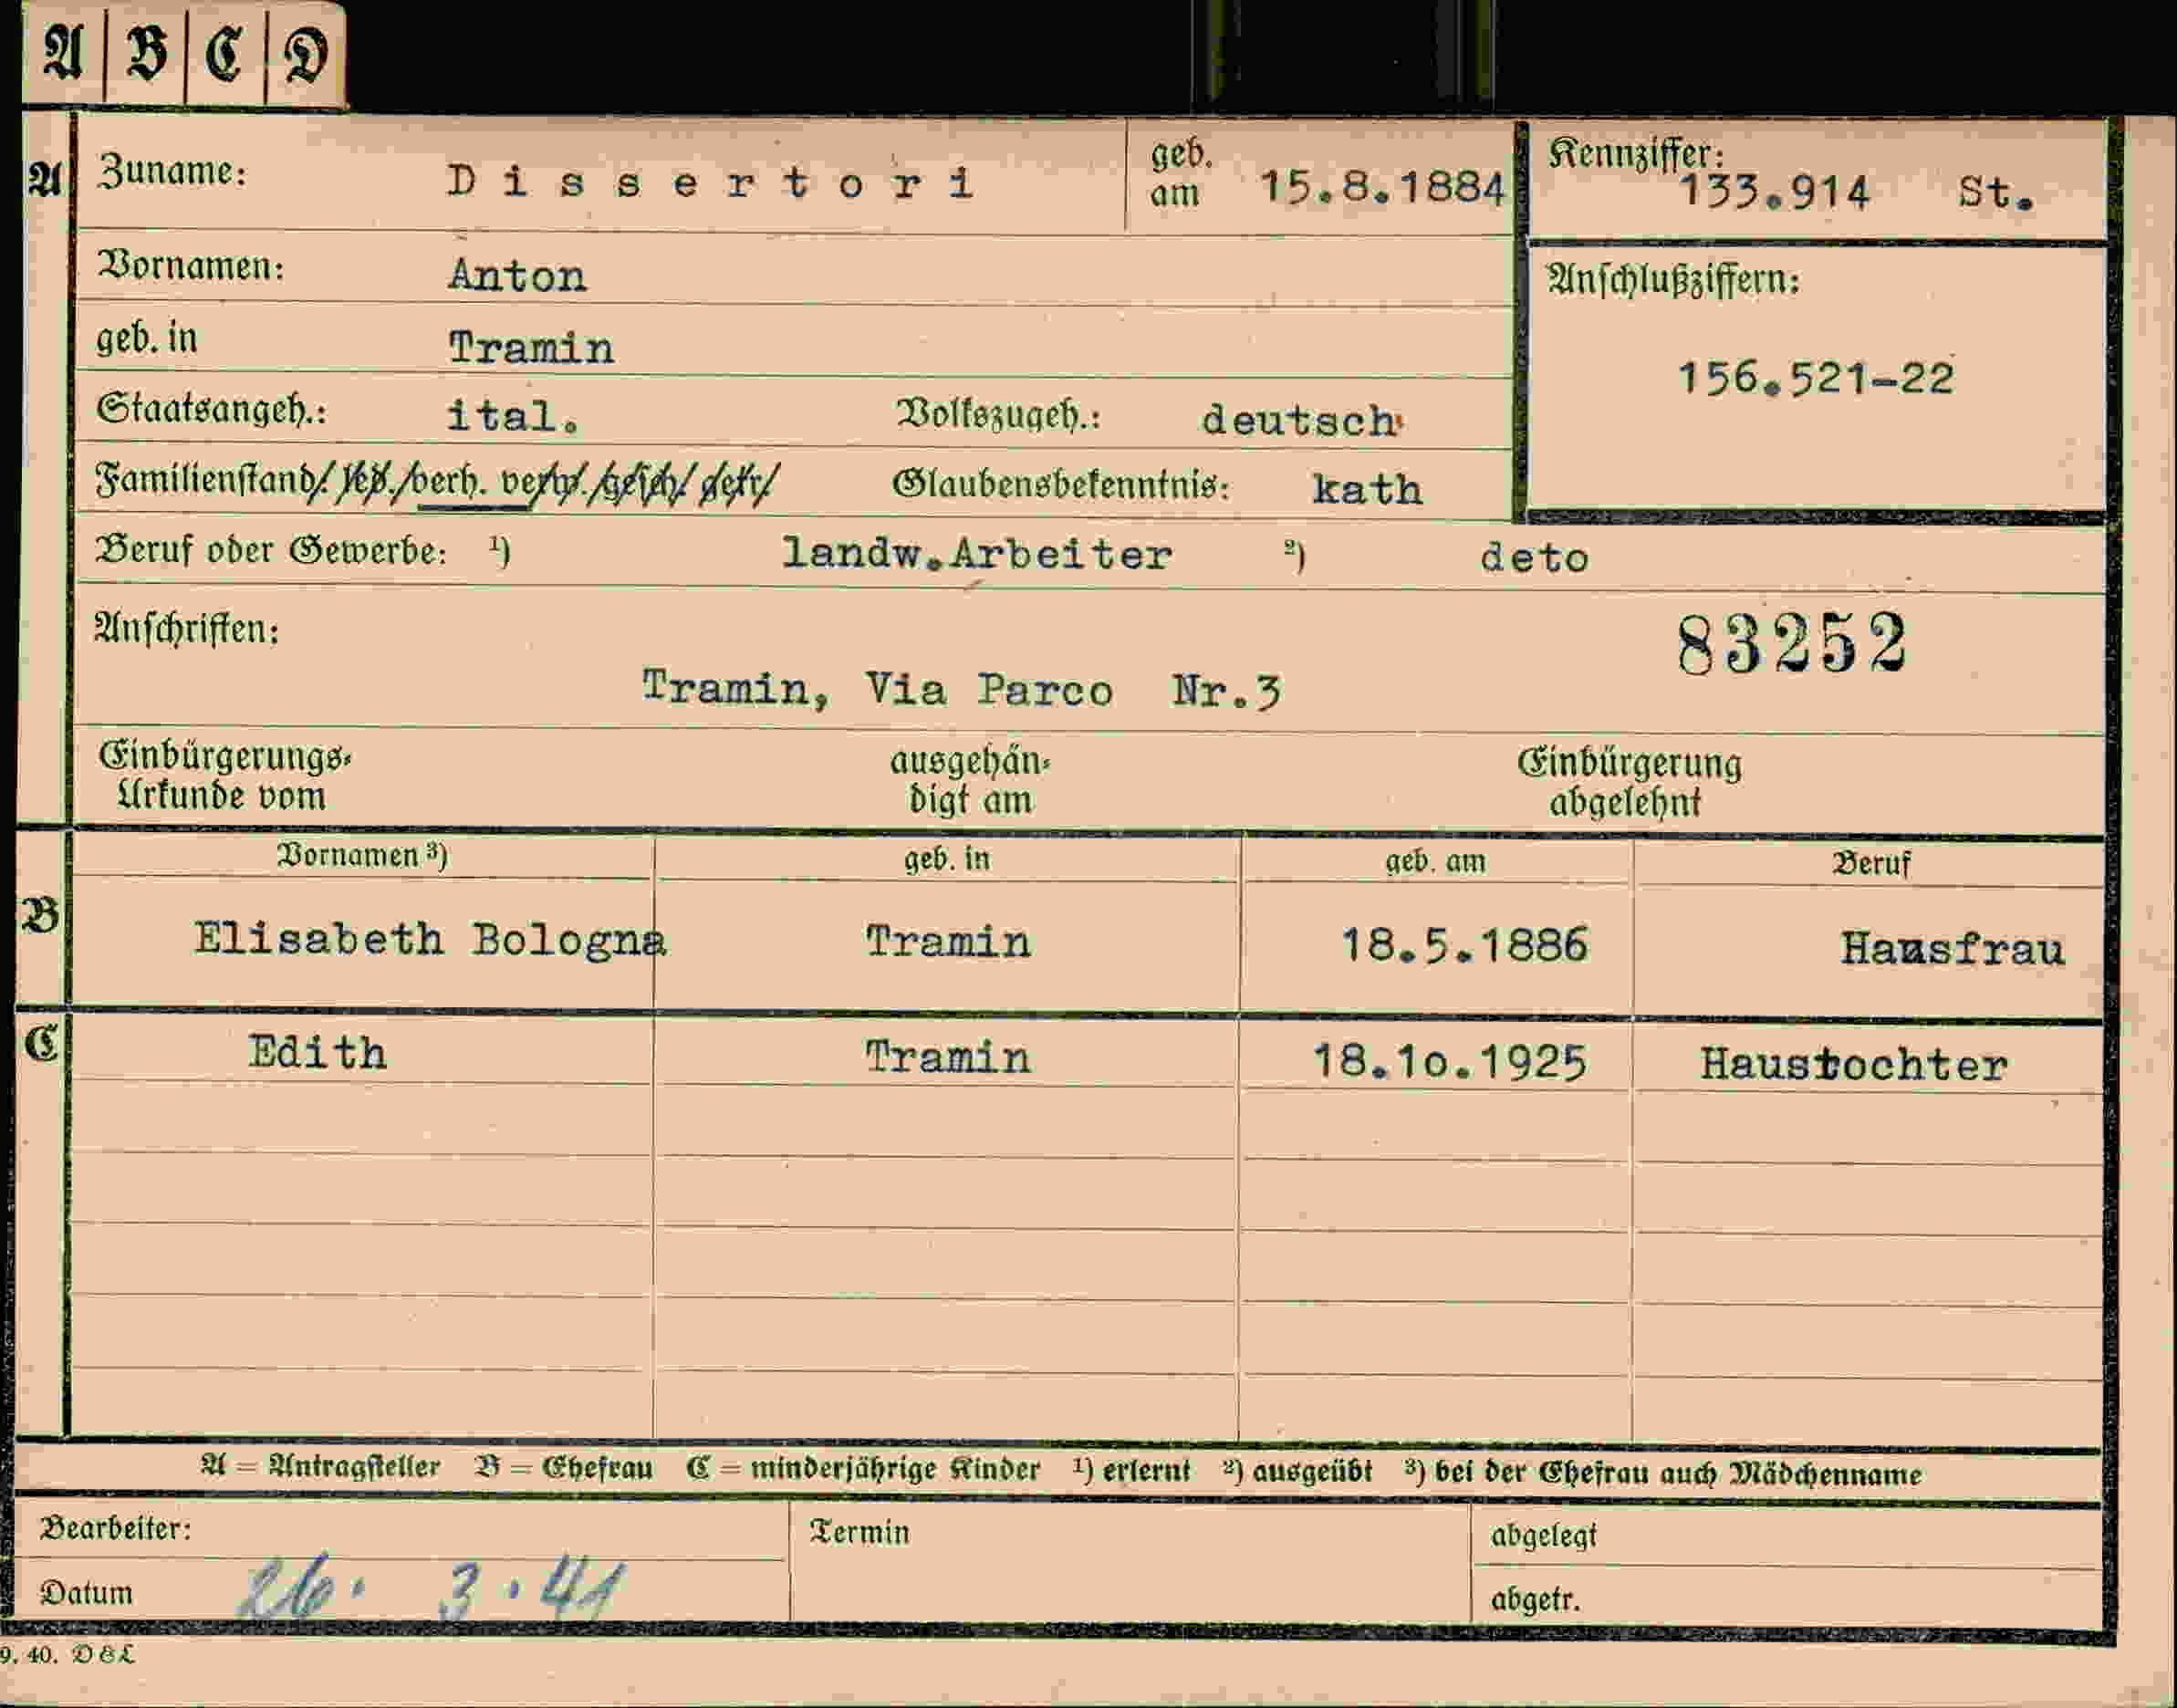 A B C D
A Zuname: Dissertori geb. am 15.8.1884 Kennziffer: 133.914 St.
Vornamen: Anton Anschlußziffern:
geb. in Tramin 156.521-22
Staatsangeh.: ital. Volkszugeh.: deutsch
Familienstand/ led./verh. verw./gesch/ getr/ Glaubensbekenntnis: kath
Beruf oder Gewerbe: ¹) landw.Arbeiter ²) deto
Anschriften: 83252
Tramin, Via Parco Nr.3
Einbürgerungs-
Urkunde vom
ausgehän-
digt am
Einbürgerung
abgelehnt
Vornamen ³) geb. in geb. am Beruf
B Elisabeth Bologna Tramin 18.5.1886 Hausfrau
C Edith Tramin 18.1o.1925 Haustochter
A = Antragsteller B = Ehefrau C = minderjährige Kinder ¹) erlernt ²) ausgeübt ³) bei der Ehefrau auch Mädchenname
Bearbeiter: Termin abgelegt
Datum 26. 3.41 abgetr.
9. 40. D & L